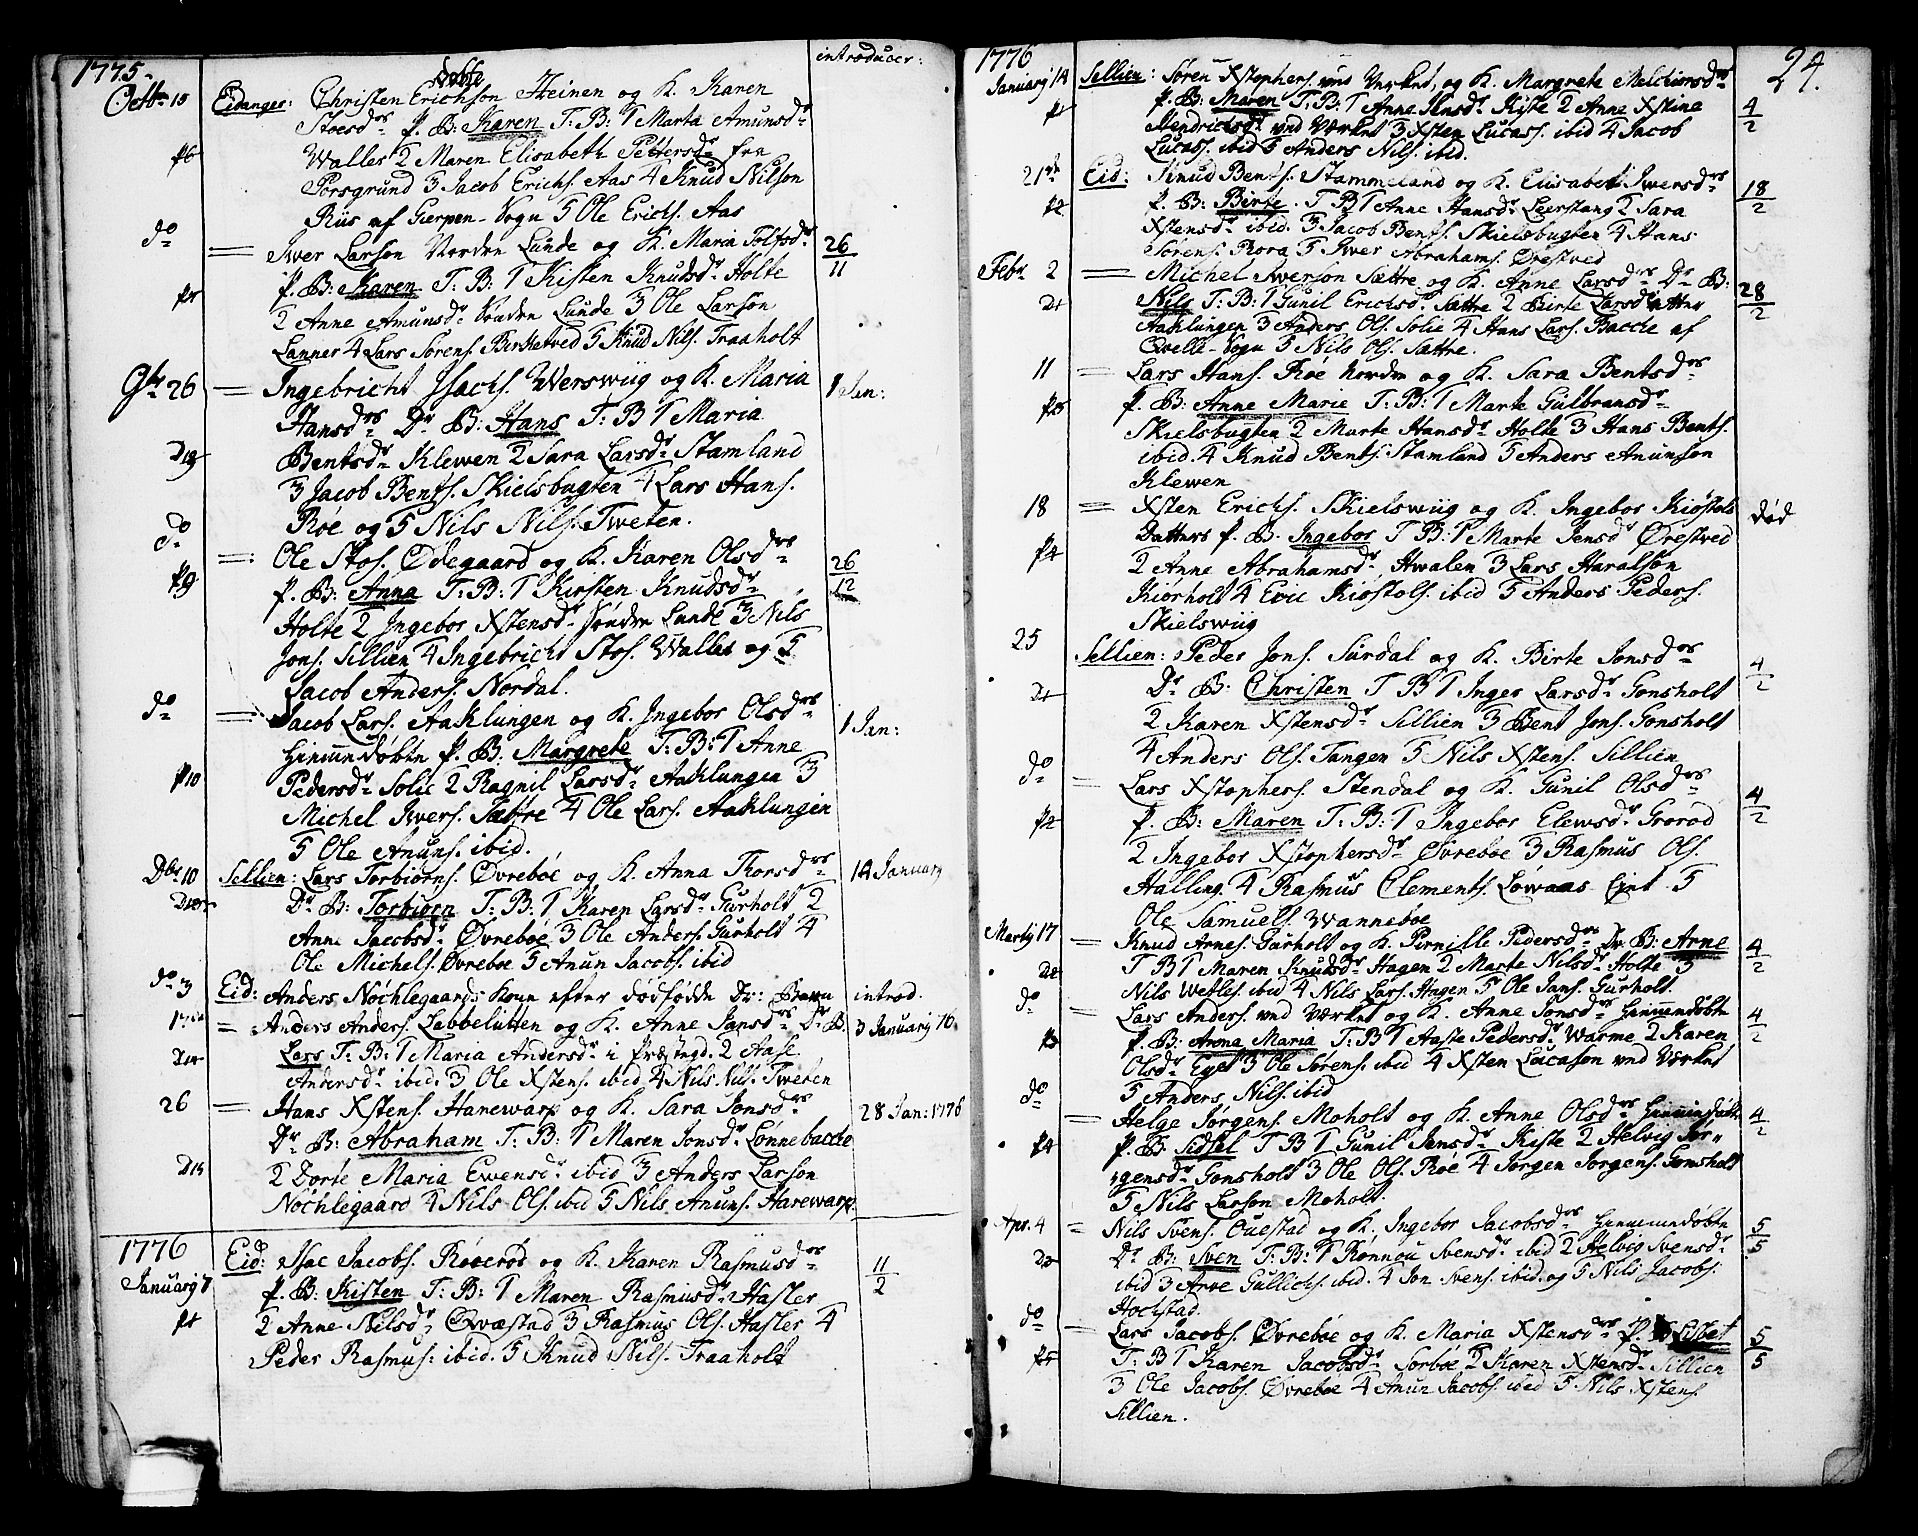 1775. introducer:
Octbr 15 Eidanger: Christen Erichson Heinen og K. Karen
Stoesdr P. B: Karen T: B: 1 Marta Amunsdr
p6 Walles 2 Maren Elisabeth Pettersdr fra
Porsgrund 3 Jacob Erichs. Aas 4 Knud Nilson
Riis af Gierpen Sogn 5 Ole Erichs. Aas
do Iwer Larson Norden Lunde og K. Maria Tolfsdr 26/11
P. B: Karen T: B: 1 Kisten Knudsdr Holte
2 Anne Amunsdr Sönden Lunde 3 Ole Larson
Lanner 4 Lars Sörens. Birketved 5 Knud Nils. Traaholt
9br 26 Ingebricht Isachs. Werswiig og K. Maria 1 Jan:
Hansdrs Dr B: Hans T: B 1 Maria
Bentsdr Klewen 2 Sara Larsdr Stamland
3 Jacob Bents. Skielsbugten 4 Lars Hans.
Röe og 5 Nils Nils. Tweten.
do Ole Stos. Ödegaard og K. Karen Olsdrs 26/12
p9 P. B: Anna T: B: 1 Kirsten Knudsdr
Holte 2 Ingebor Xstensdr Sönden Lunde 3 Nils
Jons. Sillien 4 Ingebricht Stos. Walles og 5
Jacob Anders. Nordal.
do Jacob Lars. Aaklungen og K. Ingebor Olsdrs 1 Jan:
hiemmedöbte P. B: Margrete T: B: 1 Anne
p10 Pedersdr Solie 2 Ragnil Larsdr Aaklungen 3
Michel Iwers. Sættre 4 Ole Lars. Aaklungen
5 Ole Anuns. ibid.
Dbr 10 Sillien: Lars Torbiörns. Övreböe og K. Anna Thorsdrs 14 January
Dr B: Torbiörn T: B: 1 Karen Larsdr Gurholt 2
Anne Jacobsdr Övreböe 3 Ole Anders. Gurholt 4
Ole Michels. Övreböe 5 Anun Jacobs. ibid
do 3 Eid: Anders Nöchlegaards Kone efter dödfödde Dr: Barn introd.
Anders Anders. Labbelütten og K. Anne Jansdrs Dr B. 3 January 76.
Lars T: B: 1 Maria Andersdr i Præstegd. 2 Aase
Andersdr ibid. 3 Ole Xstens. ibid 4 Nils Nils. Tweten
26 Hans Xstens. Harewarp og K. Sara Jonsdrs 28 Jan: 1776
Dr B: Abraham T: B: 1 Maren Jonsdr Lönnebacche
2 Dorte Maria Ewensdr ibid 3 Anders Larson
Nöchlegaard 4 Nils Ols. ibid 5 Nils Anuns. Harewarp.
1776
January 7 Eid: Isac Jacobs. Röeröd og K. Karen Rasmusdrs 11/2
P. B: Kisten T: B: 1 Maren Rasmusdr Hasler
p1 2 Anne Nilsdr Qvæstad 3 Rasmus Ols. Hasler 4
Peder Rasmus: ibid. 5 Knud Nils. Traaholt
1776 24.
January 14 Sillien: Sören Xstophers. wed Værket, og K. Margrete Melchiorsdrs
p1 P. B: Maren T: B: 1 Anne Jensdr Kiste 2 Anne Xstine 4/2
Hendricksdr wed Værket 3 Xsten Lucass. ibid 4 Jacob
Lucass. ibid 5 Anders Nils. ibid.
21 Eid: Knud Bents. Stammeland og K. Elisabet Iwersdrs 18/2
p2 P. B: Birte. T: B 1 Anne Hansdr Leerstang 2 Sara
Xstensdr ibid. 3 Jacob Bents. Skielsbugten 4 Hans
Sörens. Rora 5 Iwer Abrahams. Örestved
Febr 2 Michel Iwerson Sættre og K. Anne Larsdrs Dr B: 28/2
D1 Nils T: B: 1 Gunil Erichsdr Sættre 2 Birte Larsdr
Aaklungen 3 Anders Ols. Solie 4 Hans Lars. Bacche af
Qvelle-Sogn 5 Nils Ols. Sættre.
11 Lars Hans. Röe Norden og K. Sara Bentsdrs
P. B: Anne Marie T: B: 1 Marte Gulbransdr
Skielsbugten 2 Marte Hansdr Holte 3 Hans Bents.
ibid. 4 Knud Bents. Stamland 5 Anders Anunson
Klewen
18 Xsten Erichs. Skielswiig og K. Ingebor Kiöstols död
Datters P. B. Ingebor T B: 1 Marte Jensdr Örestved
p4 2 Anne Abrahamsdr Hwalen 3 Lars Haralson
Kiörholt 4 Eric Kiöstols. ibid 5 Anders Peders.
Skielswiig
25 Sillien: Peder Jons. Surdal og K. Birte Jonsdrs 4/2
D1 Dr B: Christen T B 1 Inger Larsdr Gonsholt
2 Karen Xstensdr Sillien 3 Bent Jons. Gonsholt
4 Anders Ols. Tangen 5 Nils Xstens. Sillien
do Lars Xstophers. Stendal og K. Gunil Olsdrs
p2 P. B: Maren T: B: 1 Ingebor Elewsdr Groröd 4/2
2 Ingebor Xstophersdr Övreböe 3 Rasmus Ols.
Halling. 4 Rasmus Clements. Löwaas Eiet 5
Ole Samuels. Wanneböe
Martij 17 Knud Arnes. Gurholt og K. Pernille Pedersdrs Dr. B: Arne 4/2
D2 T B 1 Maren Knudsdr Hagen 2 Marte Nilsdr Holte 3
Nils Wetles. ibid 4 Nils Lars. Hagen 5 Ole Jans. Gurholt.
do Lars Anders. wed Værket og K. Anne Jonsdrs hiemmendöbte 4/2
p3 P. B: Anna Maria T: B 1 Aaste Pedersdr Warme 2 Karen
Olsdr Eget 3 Ole Sörens. ibid 4 Xsten Lucason wed Værket
5 Anders Nils. ibid
do Helge Jörgens. Moholt og K. Anne Olsdrs hiemmendöbte 4/2
p4 P. B. Sidsel T B 1 Gunil Jensdr Kiste 2 Helvig Jör-
gensdr Gonsholt 3 Ole Ols. Röe 4 Jörgen Jörgens. Gonsholt
5 Nils Larson Moholt.
Apr. 4 Nils Svens. Ouestad og K. Ingebor Jacobsdrs hiemmendöbte 5/5
D3 Dr B: Sven T: B: 1 Rönnou Svensdr ibid 2 Helvig Svensdr
ibid 3 Arve Gullichs. ibid. 4 Jon Svens. ibid. og 5 Nils Jacobs.
Hochstad.
do Lars Jacobs. Övreböe og K. Maria Xstensdrs P. B Lisbet 5/5
p5 T: B 1 Karen Jacobsdr Sorböe 2 Karen Xstensdr Sillien
3 Ole Jacobs. Övreböe 4 Anun Jacobs. ibid 5 Nils Xstens.
Sillien.